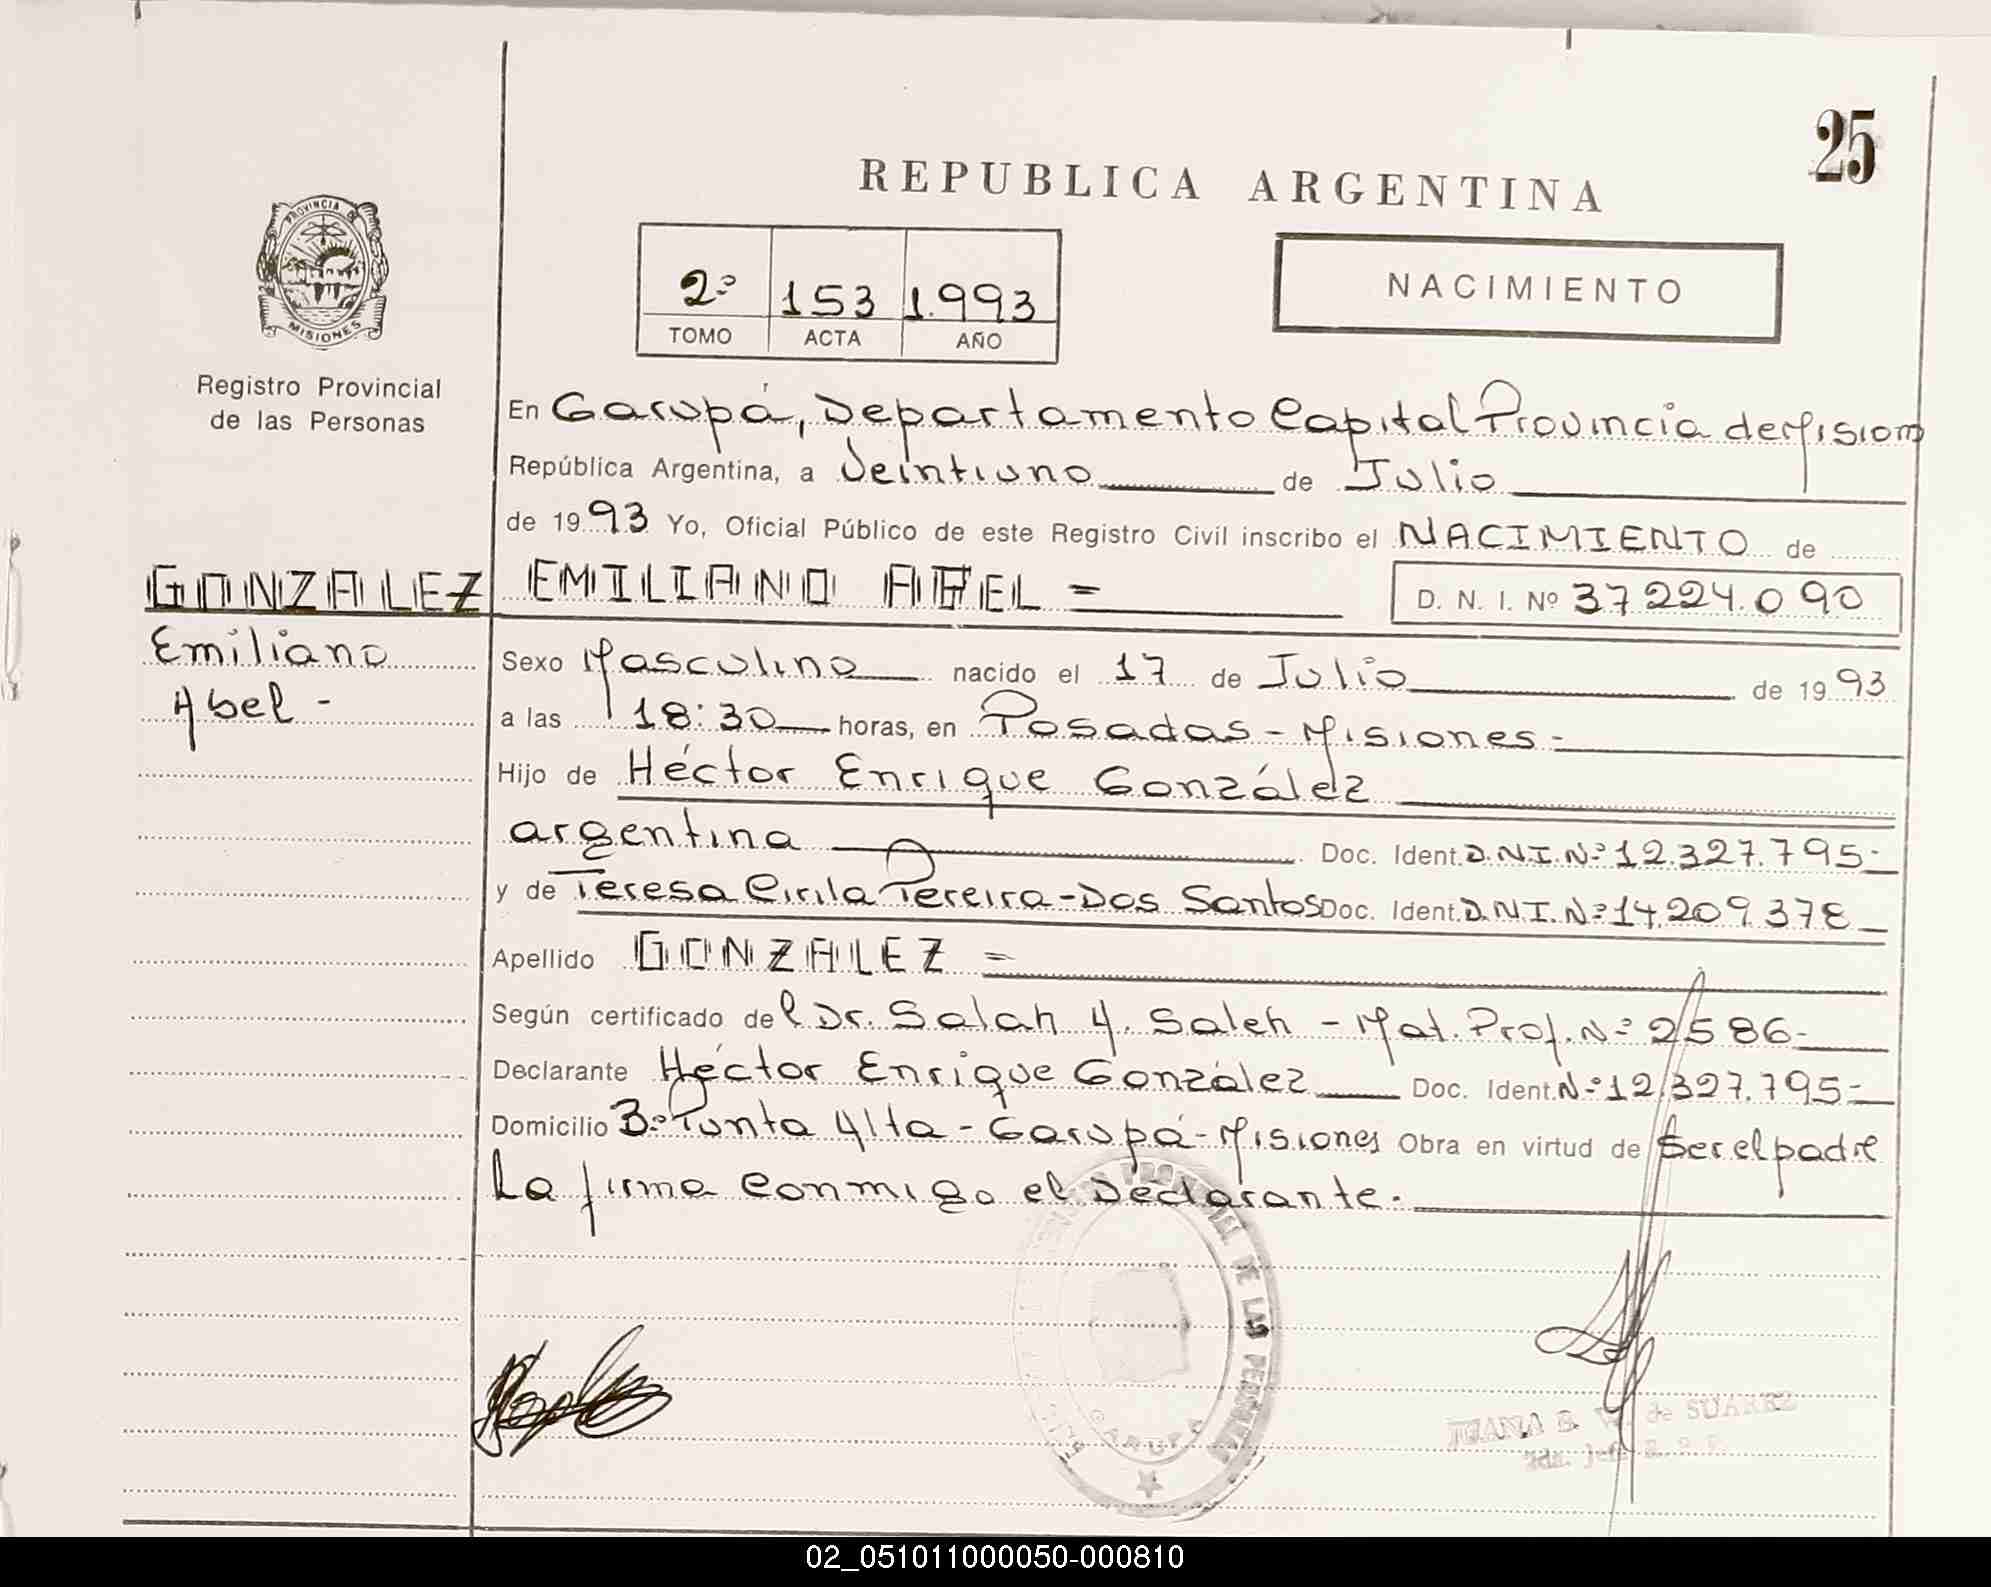 25
REPUBLICA ARGENTINA
PROVINCIA DE
MISIONES
Registro Provincial
de las Personas
2º 153 1.993
TOMO ACTA AÑO
NACIMIENTO
En Garupá, Departamento Capital Provincia de Misiones
República Argentina, a Veintiuno de Julio
de 1993 Yo, Oficial Público de este Registro Civil inscribo el NACIMIENTO de
GONZALEZ EMILIANO ABEL =
D. N. I. Nº 37224.090
Emiliano
Abel -
Sexo Masculino nacido el 17 de Julio de 1993
a las 18:30 horas, en Posadas - Misiones -
Hijo de Héctor Enrique González
argentina Doc. Ident. D.N.I.Nº 12.327.795-
y de Teresa Cirila Pereira-Dos Santos Doc. Ident. D.N.I.Nº 14.209.378
Apellido GONZALEZ =
Según certificado del Dr. Salah Y. Saleh - Mat. Prof. Nº 2586-
Declarante Héctor Enrique González Doc. Ident. Nº 12.327.795-
Domicilio Bº Punta Alta - Garupá - Misiones Obra en virtud de Ser el padre
La firma conmigo el Declarante.
DE LAS PERSONAS
GARUPA
JUANA de SUAREZ
02_051011000050-000810